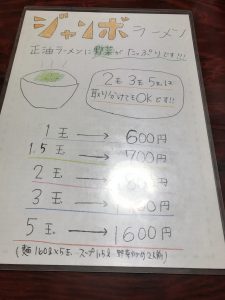 ジャンボラーメン
正油ラーメンに野菜がたっぷりです!!!
2玉 3玉 5玉は
取り分けてもOKです!!
1玉 → 600円
1.5玉 → 700円
2玉 → 円
3玉 → 円
5玉 → 1600円
(麺160g×5玉 スープ1.5ℓ 野菜